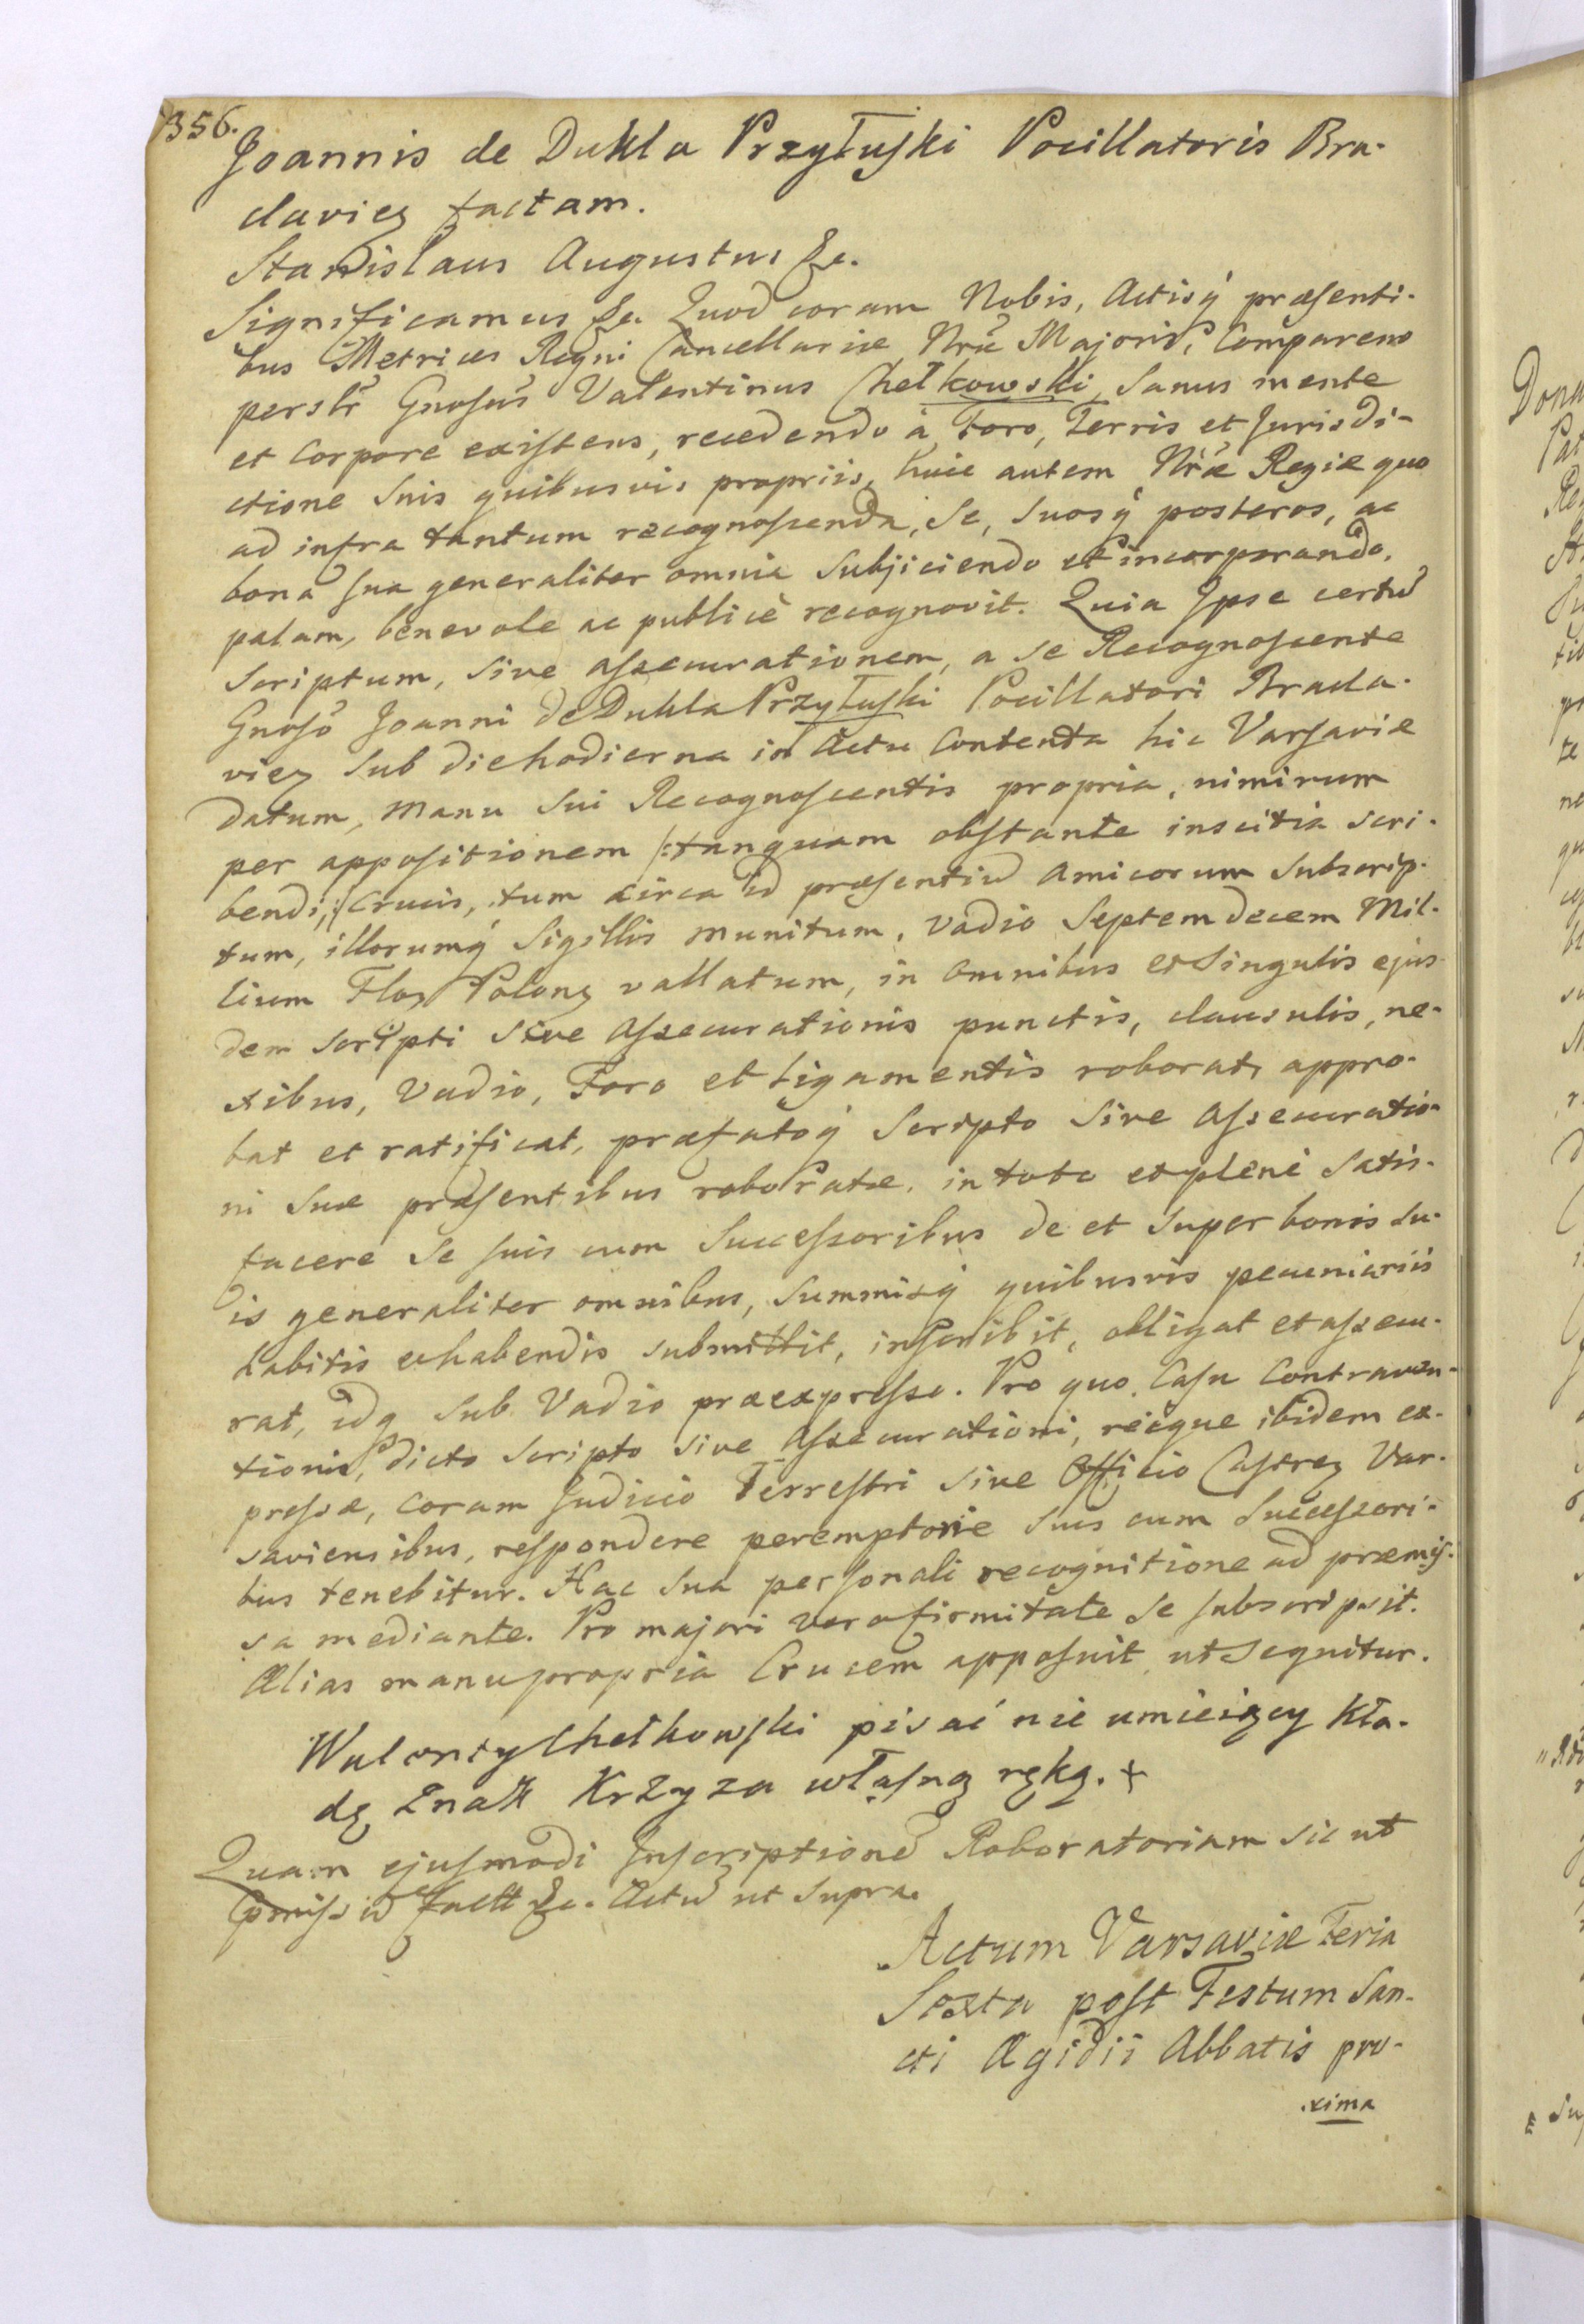 356.
Joannis de Dukla Przyłuski Pocillatoris Bra-
claviez factam.
Stanislaus Augustus &c.
Significamus &c. Quod coram Nobis, Actisq́ præsenti-
bus Metrices Regni Cancellariæ Nræ Majoris, Comparens
persłr Gnosus Valentinus Chełkowski, Sanus mente
et Corpore existens, recedendo à Foro, Terris et Jurisdi-
ctione Suis quibusvis propriis, huic autem Nræ Regiæ quo
ad infra tantum recognoscenda, Se, Suosq́ posteros, ac
bona sua generaliter omnia Subjiciendo et incorporando,
palam, benevole ac publicè recognovit. Quia Ipse certū
Scriptum, Sive assecurationem, a Se Recognoscente
Gnoso Joanni de Dukla Przyłuski Pocillatori Bracla-
viez Sub die hodierna in Actu Contenta hic Varsaviæ
datum, manu Sui Recognoscentis propria, nimirum
per appositionem /:tanquam obstante inscitia scri-
bendi,:/ Crucis, tum circa id præsentiū Amicorum Subscrip-
tum, illorumq́ Sigillis munitum, Vadio Septemdecem Mil-
lium Flor Polonz vallatum, in Omnibus et Singulis ejus-
dem Scripti Sive Assecurationis punctis, clausulis, ne-
xibus, Vadio, Foro et Ligamentis roborat, appro-
bat et ratificat, præfatoq́ Scripto Sive Assecuratio-
ni Suæ præsentibus roboratæ, in toto et plenè Satis-
facere Se suis cum Successoribus de et Super bonis Su-
is generaliter omnibus, Summisq́ quibusvis pecuniariis
habitis et habendis submittit, inscribit, obligat et assecu-
rat, idq́ Sub Vadio præexpresso. Pro quo Casu Contraven-
tionis, dicto Scripto Sive Assecurationi, reique ibidem ex-
pressæ, coram Judicio Terrestri Sive Officio Castrez Var-
saviensibus, respondere peremptorie Suis cum Successori-
bus tenebitur. Hac Sua personali recognitione ad præmis-
sa mediante. Pro majori vero firmitate Se subscripsit.
Alias manu propria Crucem apposuit ut Sequitur.
Walenty Chełkowski pisać nie umieiący kła-
dę Znak Krzyza własną ręką. +
Quam ejusmodi Inscriptionē Roboratoriam sic ut
pmiss ē factt &c. Actū ut Supra.
Actum Varsaviæ Feria
Sexta post Festum San-
cti Ægidii Abbatis pro-
xima